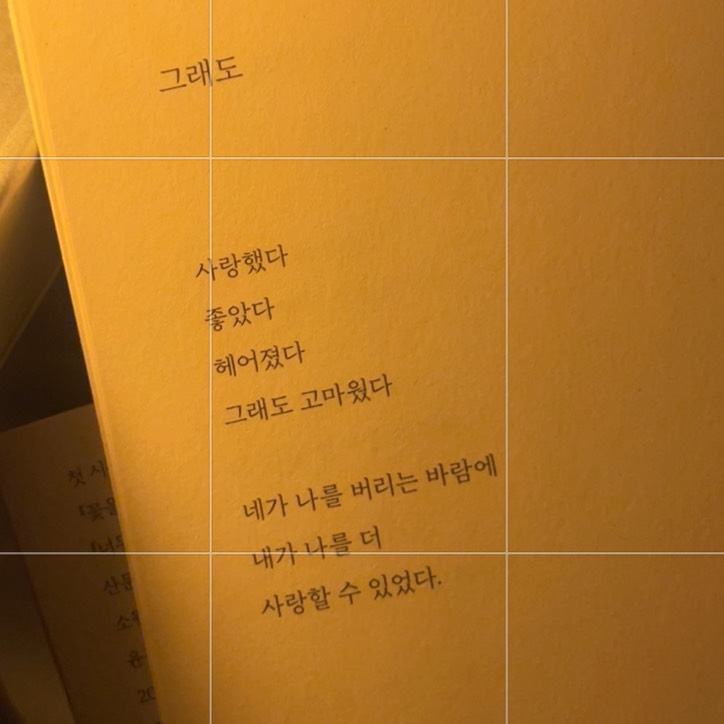 그래도
사랑했다
좋았다
헤어졌다
그래도 고마웠다
네가 나를 버리는 바람에
내가 나를 더
사랑할 수 있었다.
첫
산문
20